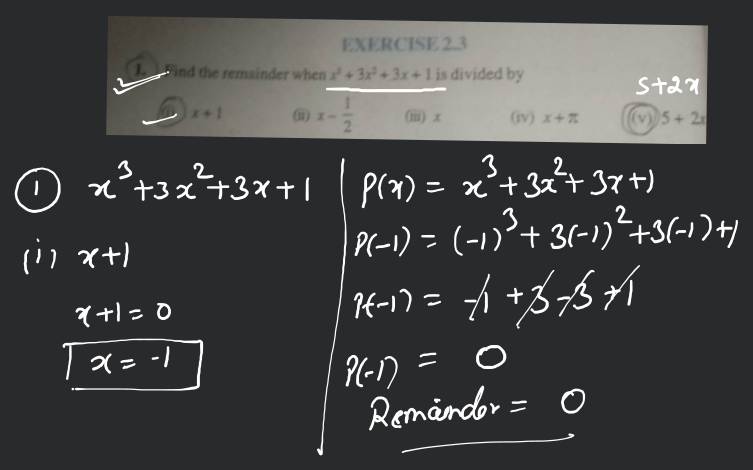 EXERCISE 2.3
1. Find the remainder when x³ + 3x² + 3x + 1 is divided by
5+2x
(i) x + 1 (ii) x − 1/2 (iii) x (iv) x + π (v) 5 + 2x
① x³+3x²+3x+1
(i) x+1
x+1 = 0
x = -1
P(x) = x³+3x²+3x+1
P(-1) = (-1)³+3(-1)²+3(-1)+1
P(-1) = -1+3-3+1
P(-1) = 0
Remainder = 0